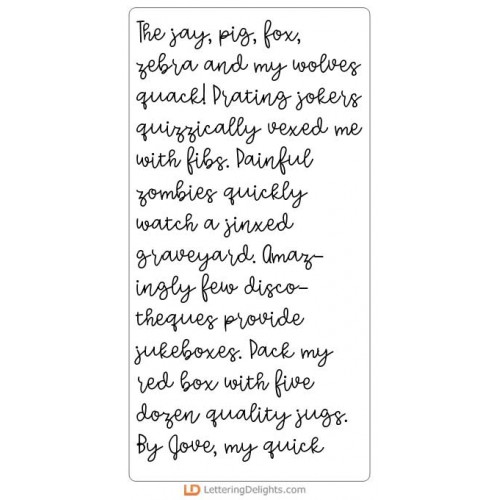 The jay, pig, fox,
zebra and my wolves
quack! Prating jokers
quizzically vexed me
with fibs. Painful
zombies quickly
watch a jinxed
graveyard. Amaz-
ingly few disco-
theques provide
jukeboxes. Pack my
red box with five
dozen quality jugs.
By Jove, my quick
LD LetteringDelights.com